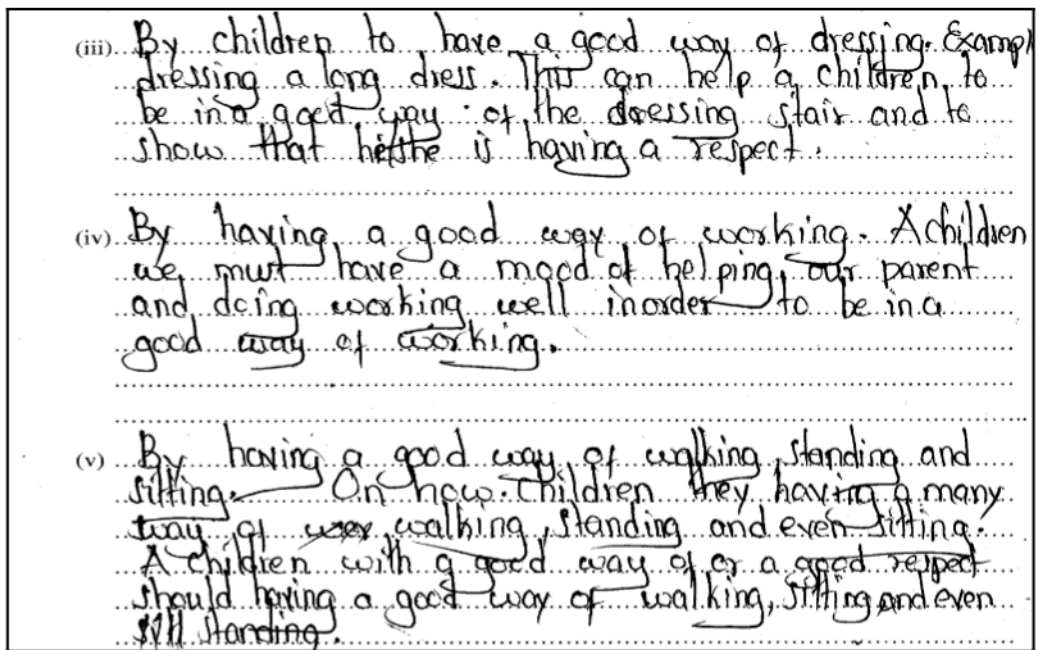 (iii) By children to have a good way of dressing. Exampl
dressing a long dress. This can help a children to
be in a good way of the dressing stair and to
show that he/she is having a respect.
(iv) By having a good way of working. A children
we must have a mood of helping our parent
and doing working well inorder to be in a
good way of working.
(v) By having a good way of walking, standing and
sitting. On how. Children they having a many
way of walking, standing and even sitting.
A children with a good way of or a good respect
should having a good way of walking, sitting and even
standing.